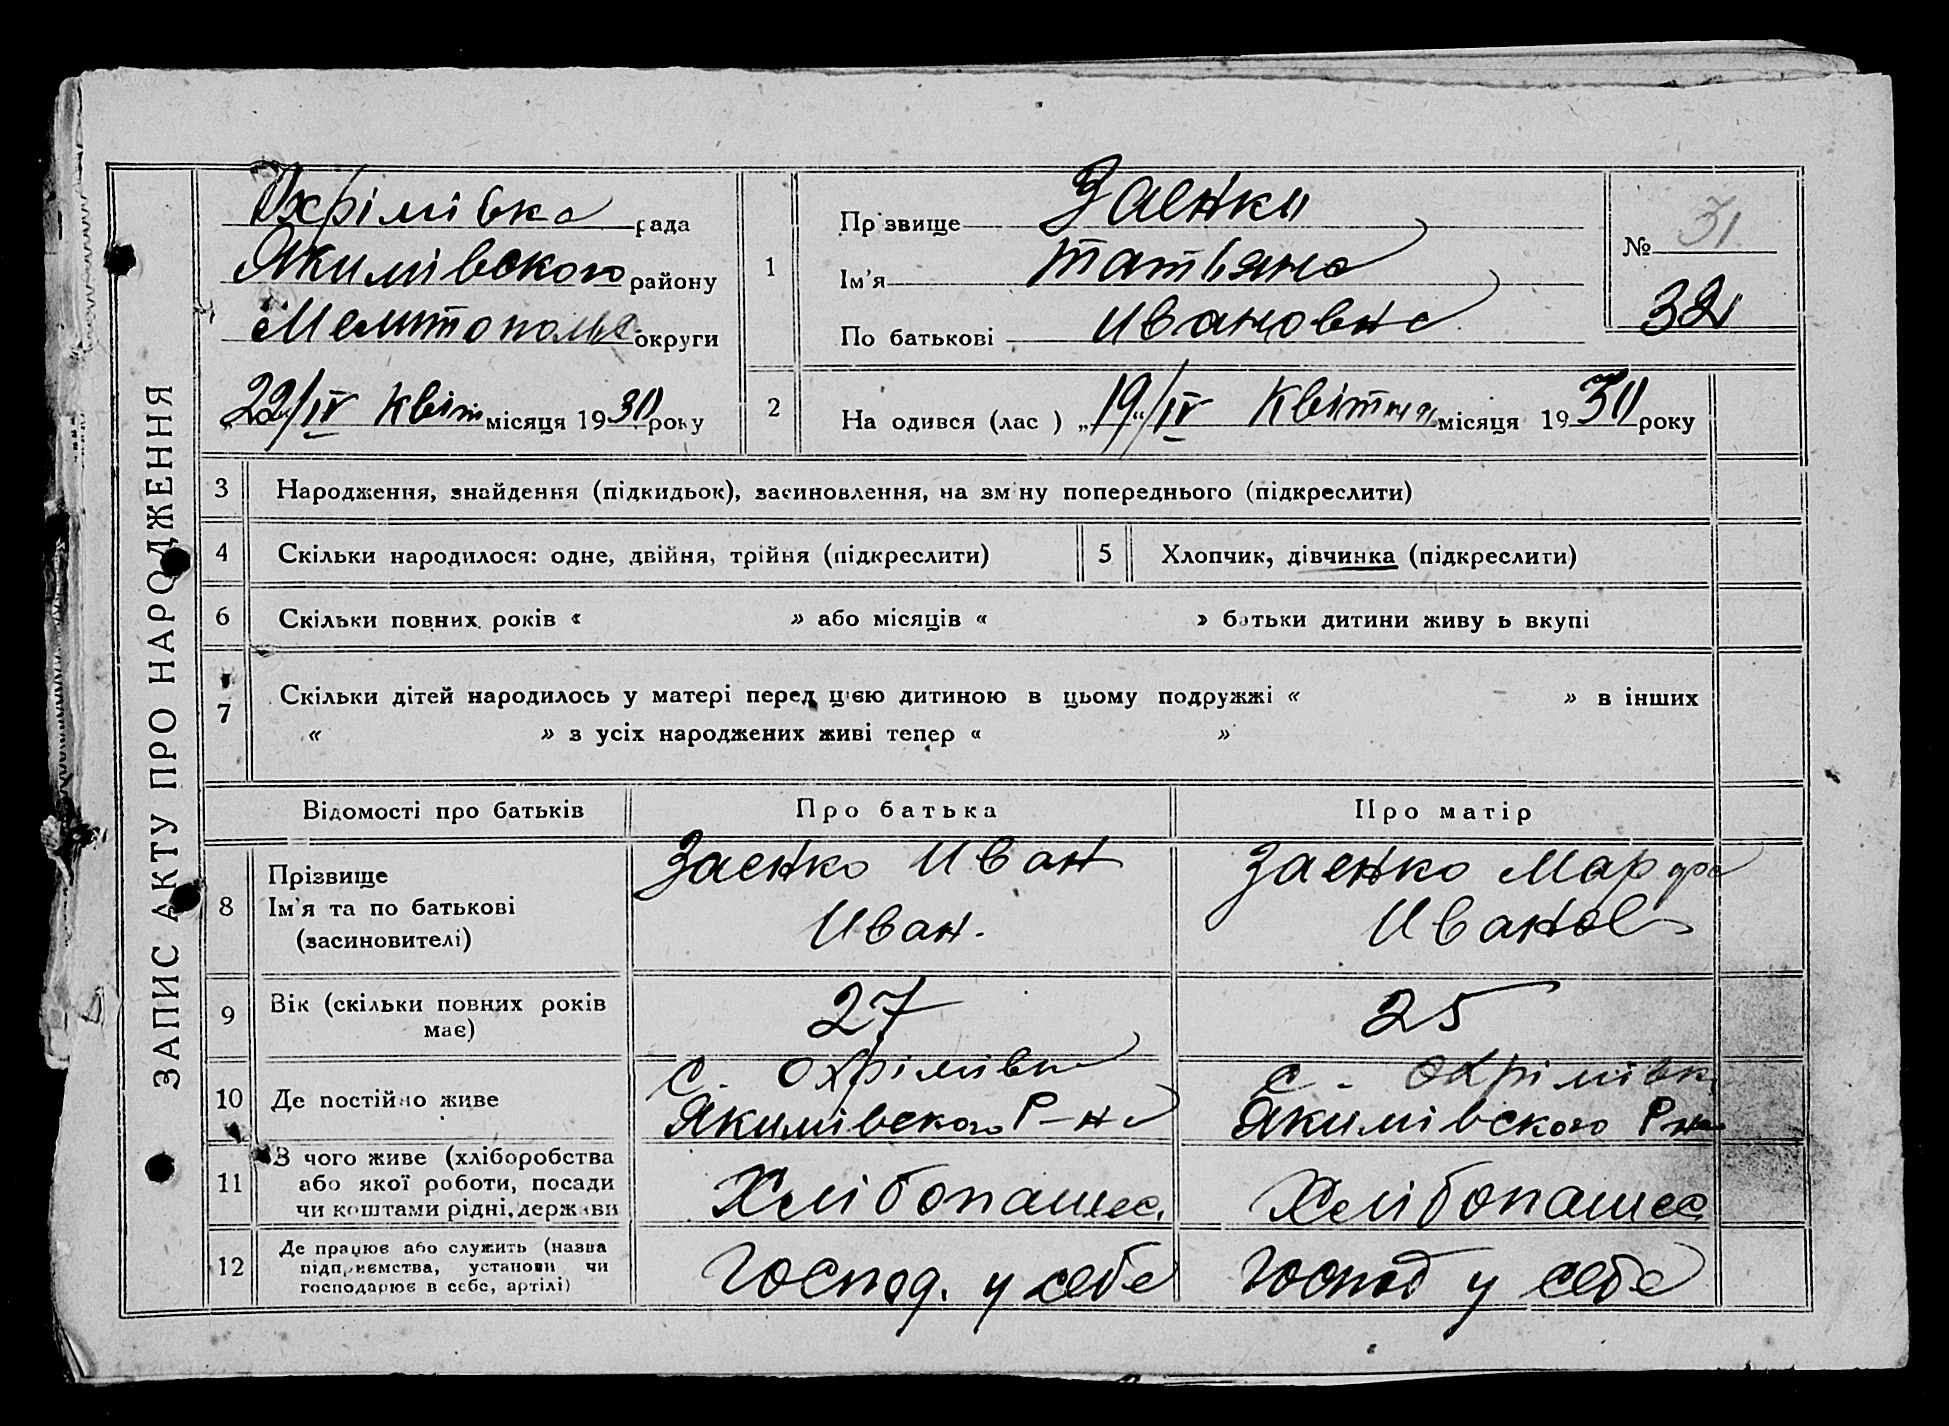 ЗАПИС АКТУ ПРО НАРОДЖЕННЯ
Охрімівка рада
Якимівского району
Мелитопольс округи
„22/IV квітн місяця 1930 року
1
Прізвище Заенки
Ім’я Татьяна
По батькові Ивановна
№ 31
32
2
На одився (лас ) „19“/IV Квітня місяця 1930 року
3 Народження, знайдення (підкидьок), засиновлення, на зміну попереднього (підкреслити)
4 Скільки народилося: одне, двійня, трійня (підкреслити)
5 Хлопчик, дівчинка (підкреслити)
6 Скільки повних років « » або місяців « » батьки дитини живуть вкупі
7 Скільки дітей народилось у матері перед цією дитиною в цьому подружжі « » в інших
« » з усіх народжених живі тепер « »
Відомості про батьків Про батька Про матір
8 Прізвище
Ім’я та по батькові
(засиновителі)
Заенко Иван
Иван.
Заенко Марфа
Иванов
9 Вік (скільки повних років
має)
27
25
10 Де постійно живе
с. Охрімівка
Якимівского Р-на
с. Охрімівка
Якимівского Р-на
11 З чого живе (хліборобства
або якої роботи, посади
чи коштами рідні, держави
Хлібопашес.
Хлібопашес
12 Де працює або служить (назва
підприємства, установи чи
господарює в себе, артілі)
Господ. у себе
Господ у себе